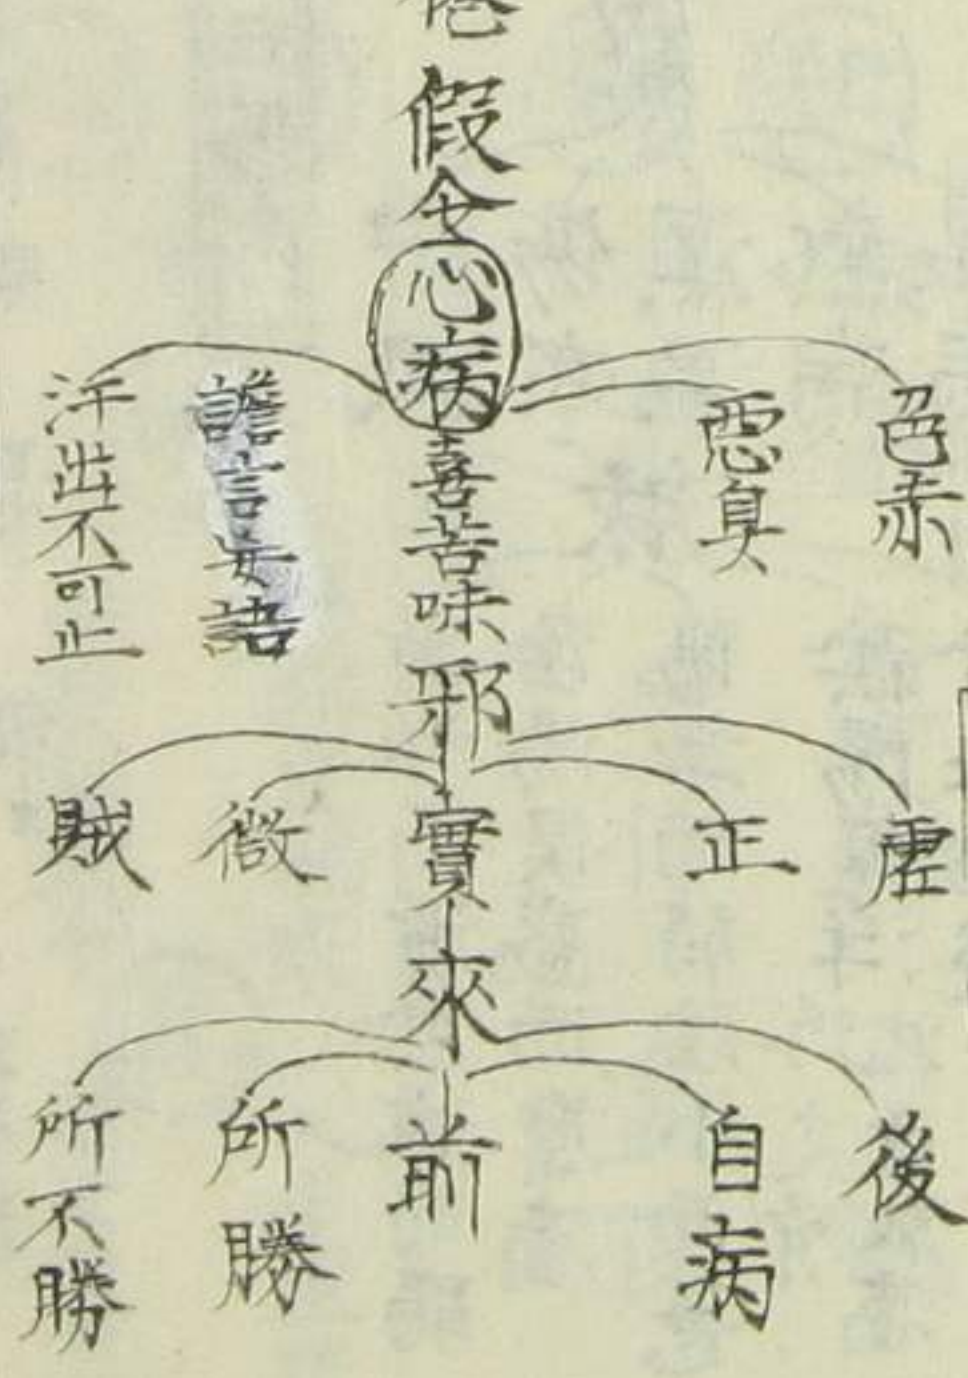 假令
心病
色赤
惡臭
喜苦味
譫言妄語
汗出不可止
邪
虛
正
實
微
賊
來
後
自病
前
所勝
所不勝